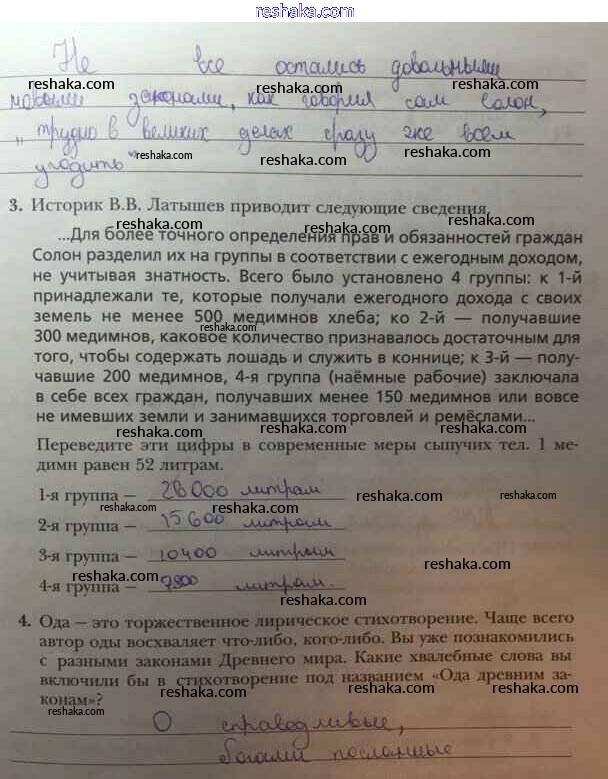 reshaka.com
Не все остались довольными
новыми законами, как говорил сам Солон,
„трудно в великих делах сразу же всем
угодить"
3. Историк В.В. Латышев приводит следующие сведения.
...Для более точного определения прав и обязанностей граждан
Солон разделил их на группы в соответствии с ежегодным доходом,
не учитывая знатность. Всего было установлено 4 группы: к 1-й
принадлежали те, которые получали ежегодного дохода с своих
земель не менее 500 медимнов хлеба; ко 2-й — получавшие
300 медимнов, каковое количество признавалось достаточным для
того, чтобы содержать лошадь и служить в коннице; к 3-й — полу-
чавшие 200 медимнов, 4-я группа (наёмные рабочие) заключала
в себе всех граждан, получавших менее 150 медимнов или вовсе
не имевших земли и занимавшихся торговлей и ремёслами...
Переведите эти цифры в современные меры сыпучих тел. 1 ме-
димн равен 52 литрам.
1-я группа — 26000 литрам
2-я группа — 15600 литрам
3-я группа — 10400 литрам
4-я группа — литрам.
4. Ода — это торжественное лирическое стихотворение. Чаще всего
автор оды восхваляет что-либо, кого-либо. Вы уже познакомились
с разными законами Древнего мира. Какие хвалебные слова вы
включили бы в стихотворение под названием «Ода древним за-
конам»?
О справедливые,
богами посланные